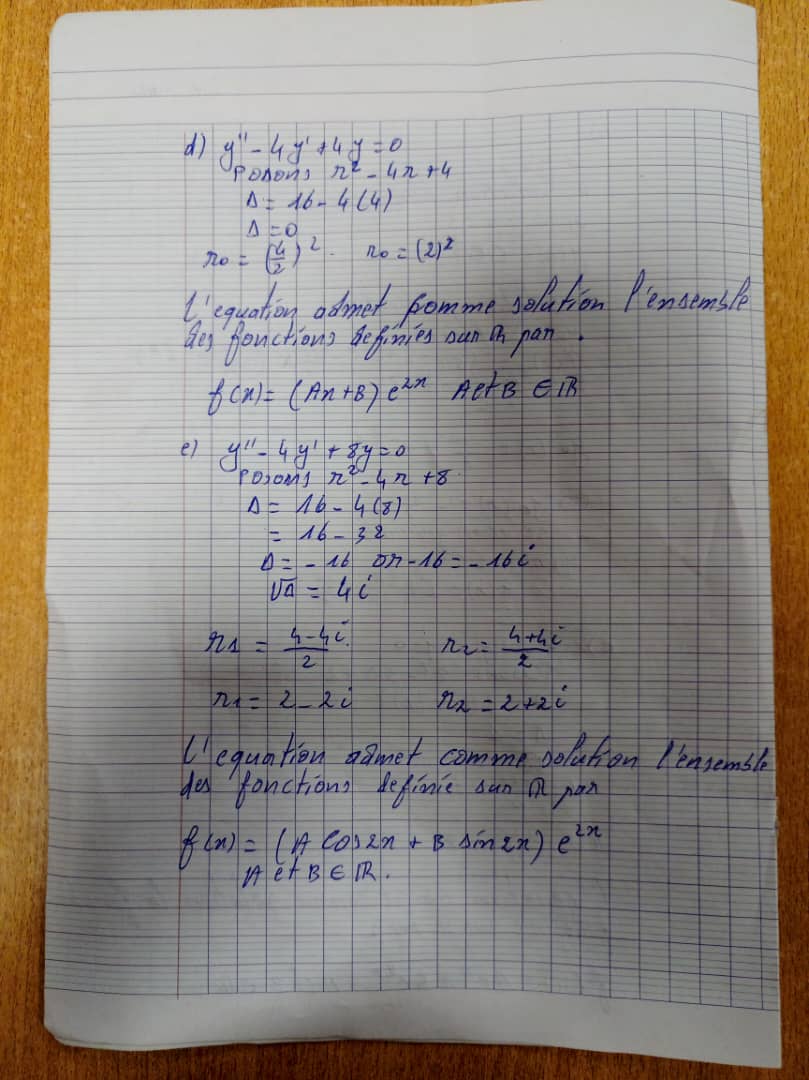 d) y'' - 4y' + 4y = 0
Posons r² - 4r + 4
Δ = 16 - 4(4)
Δ = 0
r₀ = (4/2)². r₀ = (2)²
L'equation admet comme solution l'ensemble
des fonctions definies sur ℝ par.
f(x) = (Ax+B) e^{2x} A et B ∈ ℝ
e) y'' - 4y' + 8y = 0
Posons r² - 4r + 8
Δ = 16 - 4(8)
= 16 - 32
Δ = -16 or -16 = -16i
√Δ = 4i
r₁ = (4-4i)/2 r₂ = (4+4i)/2
r₁ = 2 - 2i r₂ = 2 + 2i
L'equation admet comme solution l'ensemble
des fonctions definie sur ℝ par
f(x) = (A cos2x + B sin2x) e^{2x}
A et B ∈ ℝ.